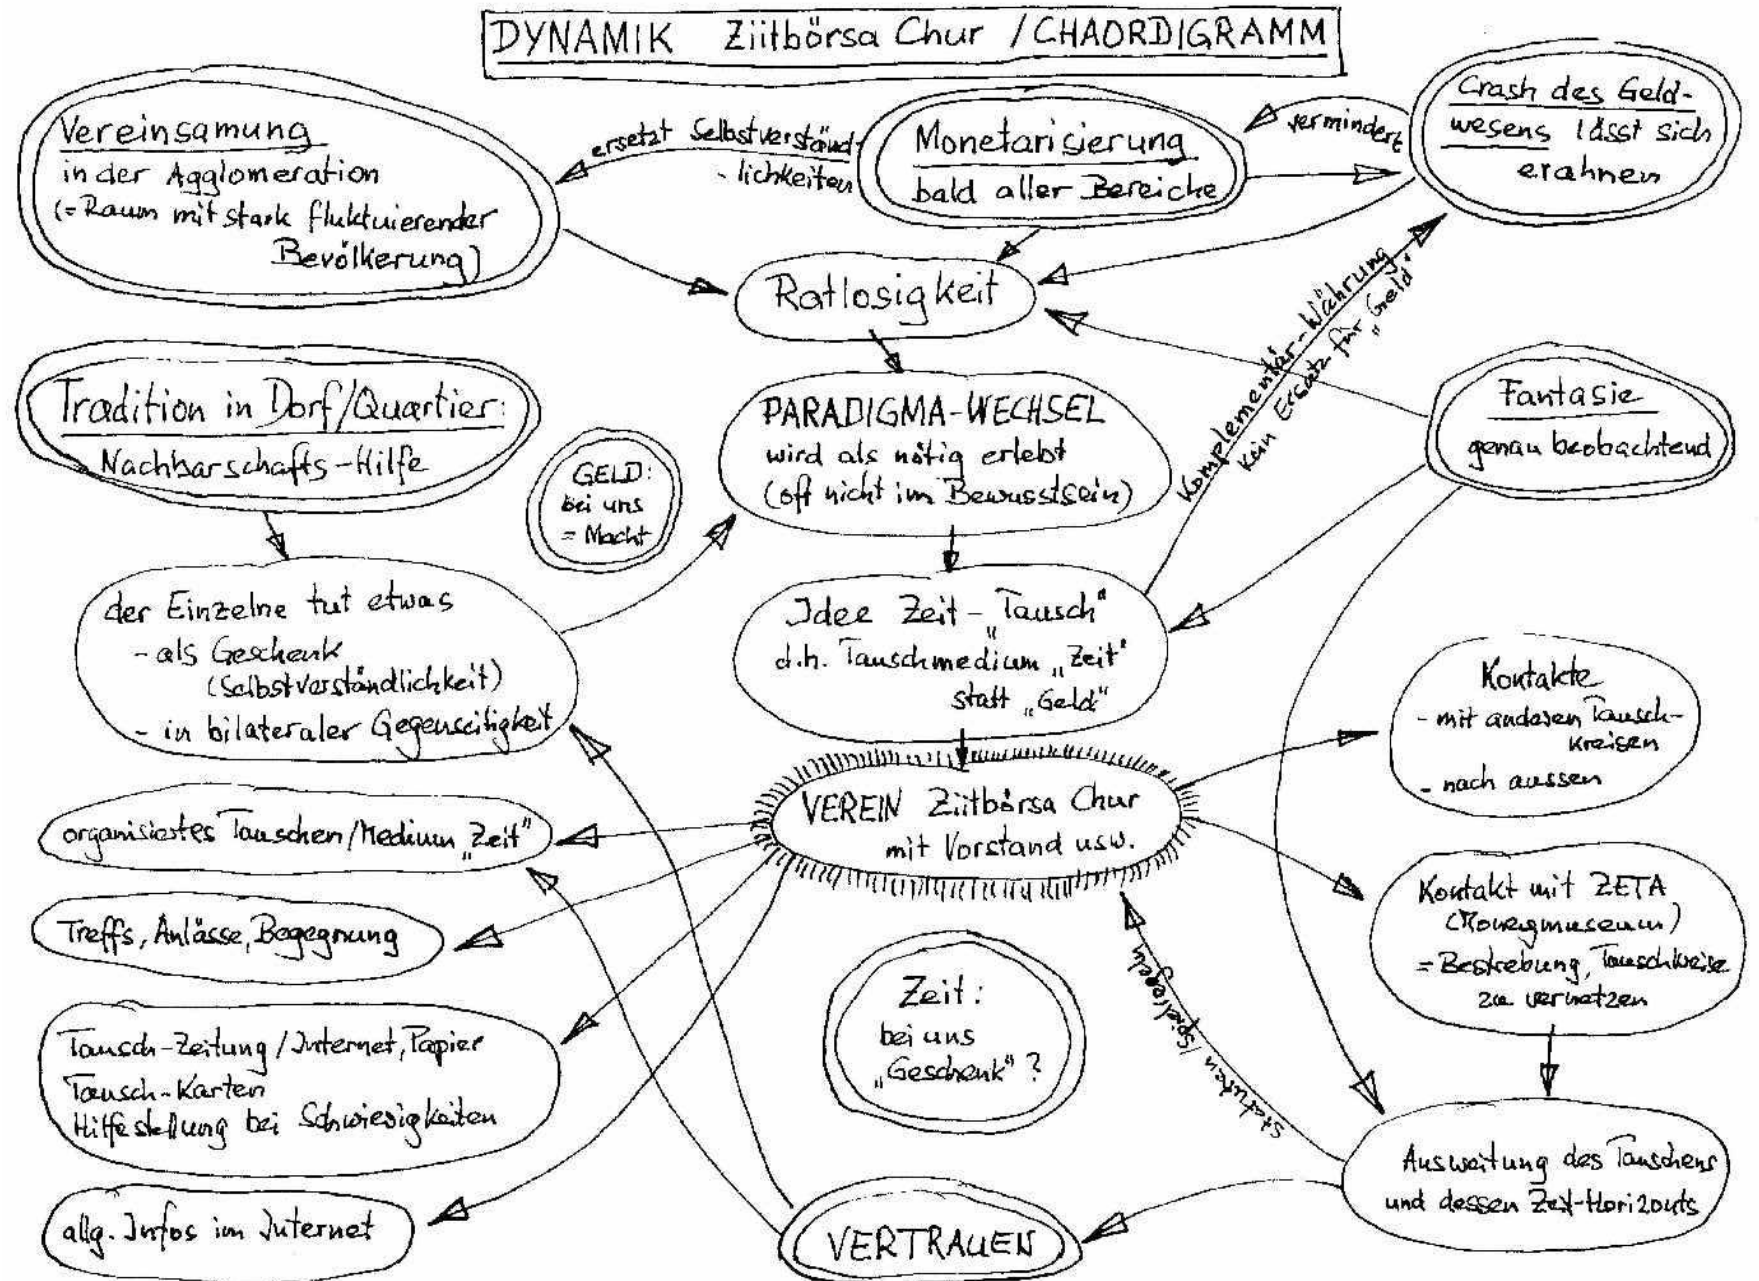 DYNAMIK Ziitbörsa Chur / CHAORDIGRAMM
Vereinsamung
in der Agglomeration
(= Raum mit stark fluktuierender
Bevölkerung)
ersetzt Selbstverständ-
-lichkeiten
Monetarisierung
bald aller Bereiche
vermindert
Crash des Geld-
wesens lässt sich
erahnen
Ratlosigkeit
Tradition in Dorf/Quartier:
Nachbarschafts-Hilfe
GELD:
bei uns
= Macht
PARADIGMA-WECHSEL
wird als nötig erlebt
(oft nicht im Bewusstsein)
Komplementär-Währung
kein Ersatz für „Geld"
Fantasie
genau beobachtend
der Einzelne tut etwas
- als Geschenk
(Selbstverständlichkeit)
- in bilateraler Gegenseitigkeit
Idee Zeit-„Tausch"
d.h. Tauschmedium „Zeit"
statt „Geld"
Kontakte
- mit anderen Tausch-
kreisen
- nach aussen
VEREIN Ziitbörsa Chur
mit Vorstand usw.
organisiertes Tauschen/Medium „Zeit"
Treffs, Anlässe, Begegnung
Kontakt mit ZETA
(Moneymuseum)
= Bestrebung, Tauschkreise
zu vernetzen
Zeit:
bei uns
„Geschenk" ?
Statuten/Spielregeln
Tausch-Zeitung/Internet, Papier
Tausch-Karten
Hilfestellung bei Schwierigkeiten
Ausweitung des Tauschens
und dessen Zeit-Horizonts
allg. Infos im Internet
VERTRAUEN